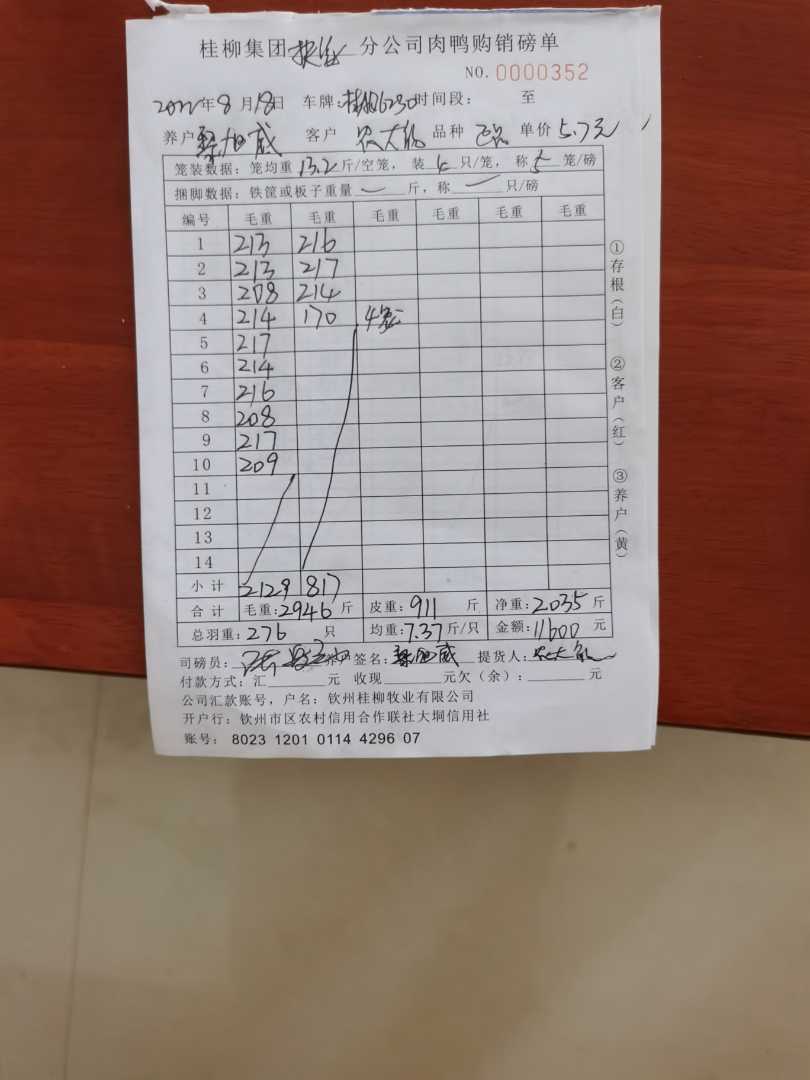 桂柳集团 分公司肉鸭购销磅单
NO. 0000352
2022年8月18日 车牌: 时间段: 至
养户 客户 农大 品种 正品 单价 5.7元
笼装数据: 笼均重 13.2 斤/空笼, 装 4 只/笼, 称 5 笼/磅
捆脚数据: 铁筐或板子重量 — 斤, 称 — 只/磅
编号 毛重 毛重 毛重 毛重 毛重 毛重
1 213 216
2 213 217
3 208 214
4 214 170 4笼
5 217
6 214
7 216
8 208
9 217
10 209
11
12
13
14
小计 2129 817
合计 毛重: 2946 斤 皮重: 911 斤 净重: 2035 斤
总羽重: 276 只 均重: 7.37 斤/只 金额: 11600 元
司磅员: 养户签名: 提货人: 农大
付款方式: 汇 元 收现 元欠(余): 元
公司汇款账号, 户名: 钦州桂柳牧业有限公司
开户行: 钦州市区农村信用合作联社大垌信用社
账号: 8023 1201 0114 4296 07
①存根(白) ②客户(红) ③养户(黄)